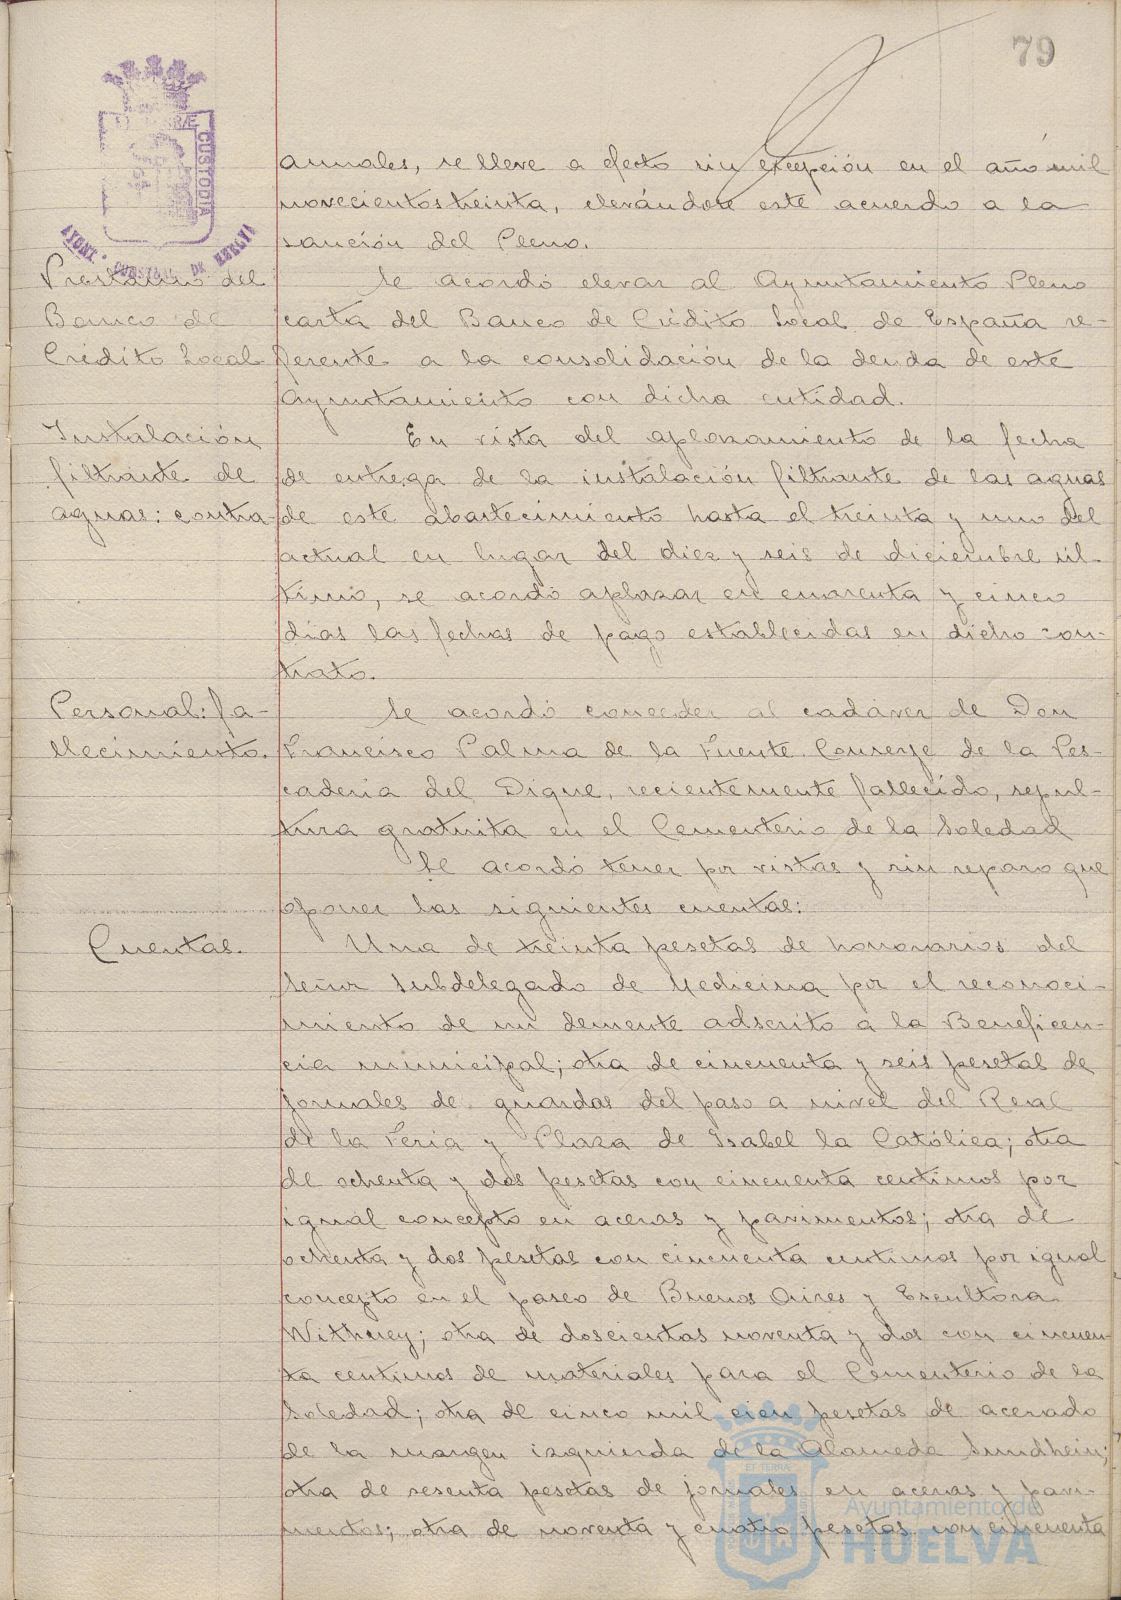 79
anuales, se lleve a efecto sin excepción en el año mil
novecientos treinta, elevándose este acuerdo a la
sanción del Pleno.
Préstamo del
Banco de
Crédito Local
Se acordó elevar al Ayuntamiento Pleno
carta del Banco de Crédito Local de España re-
ferente a la consolidación de la deuda de este
Ayuntamiento con dicha entidad.
Instalación
filtrante de
aguas: contra
En vista del aplazamiento de la fecha
de entrega de la instalación filtrante de las aguas
de este abastecimiento hasta el treinta y uno del
actual en lugar del diez y seis de diciembre úl-
timo, se acordó aplazar en cuarenta y cinco
días las fechas de pago establecidas en dicho con-
trato.
Personal: fa-
llecimiento.
Se acordó conceder al cadáver de Don
Francisco Palma de la Fuente Conserje de la Pes-
cadería del Dique, recientemente fallecido, sepul-
tura gratuita en el Cementerio de la Soledad
Se acordó tener por vistas y sin reparo que
oponer las siguientes cuentas:
Cuentas.
Una de treinta pesetas de honorarios del
Señor Subdelegado de Medicina por el reconoci-
miento de un demente adscrito a la Beneficen-
cia municipal; otra de cincuenta y seis pesetas de
jornales de guardas del paso a nivel del Real
de la Feria y Plaza de Isabel la Católica; otra
de ochenta y dos pesetas con cincuenta centimos por
igual concepto en aceras y pavimentos; otra de
ochenta y dos pesetas con cincuenta centimos por igual
concepto en el paseo de Buenos Aires y Escultora
Withney; otra de doscientas noventa y dos con cincuen-
ta centimos de materiales para el Cementerio de la
Soledad; otra de cinco mil cien pesetas de acerado
de la margen izquierda de la Alameda Sundhein;
otra de sesenta pesetas de jornales en aceras y pavi-
mentos; otra de noventa y cuatro pesetas con cincuenta
CUSTODIA
AYONT. CONSTNAL. DE HUELVA
Ayuntamiento de
HUELVA